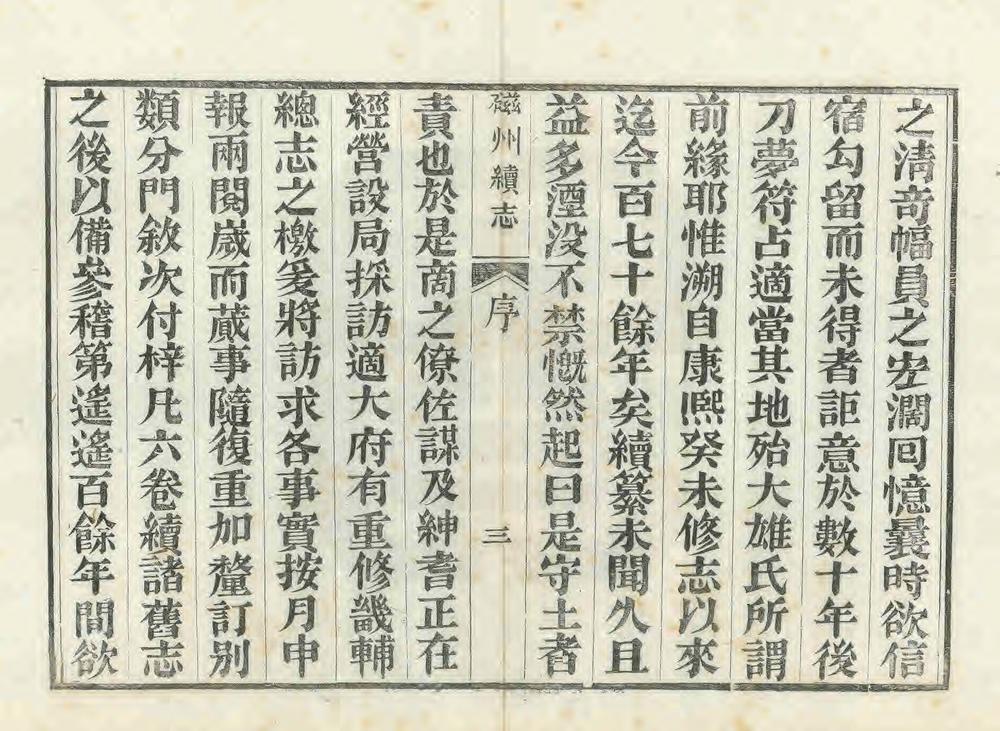 之清奇幅員之宏濶回憶曩時欲信
宿勾留而未得者詎意於數十年後
刀夢符占適當其地殆大雄氏所謂
前緣耶惟溯自康熙癸未修志以來
迄今百七十餘年矣續纂未聞久且
益多湮没不禁慨然起曰是守土者
磁州續志
序
三
責也於是商之僚佐謀及紳耆正在
經營設局採訪適大府有重修畿輔
總志之檄爰將訪求各事實按月申
報兩閱嵗而蕆事隨復重加釐訂别
類分門敘次付梓凡六卷續諸舊志
之後以備參稽第遙遙百餘年間欲